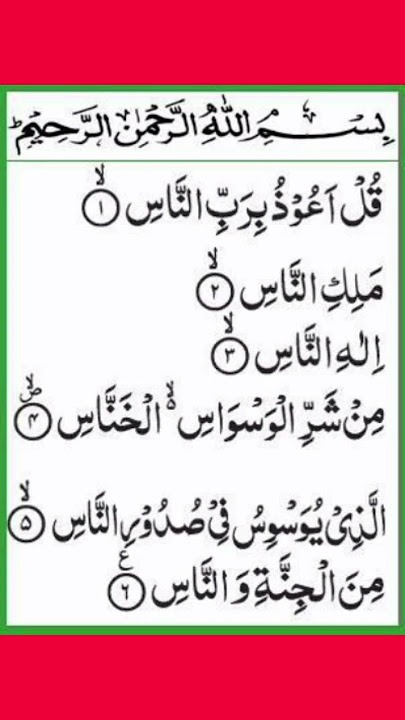 بِسْمِ اللّٰهِ الرَّحْمٰنِ الرَّحِيْمِ
قُلْ اَعُوْذُ بِرَبِّ النَّاسِ ۙ﴿۱﴾
مَلِكِ النَّاسِ ۙ﴿۲﴾
اِلٰهِ النَّاسِ ۙ﴿۳﴾
مِنْ شَرِّ الْوَسْوَاسِ ۙ۬ الْخَنَّاسِ ۪ۙ﴿۴﴾
الَّذِىْ يُوَسْوِسُ فِىْ صُدُوْرِ النَّاسِ ۙ﴿۵﴾
مِنَ الْجِنَّةِ وَ النَّاسِ ﴿۶﴾ ع